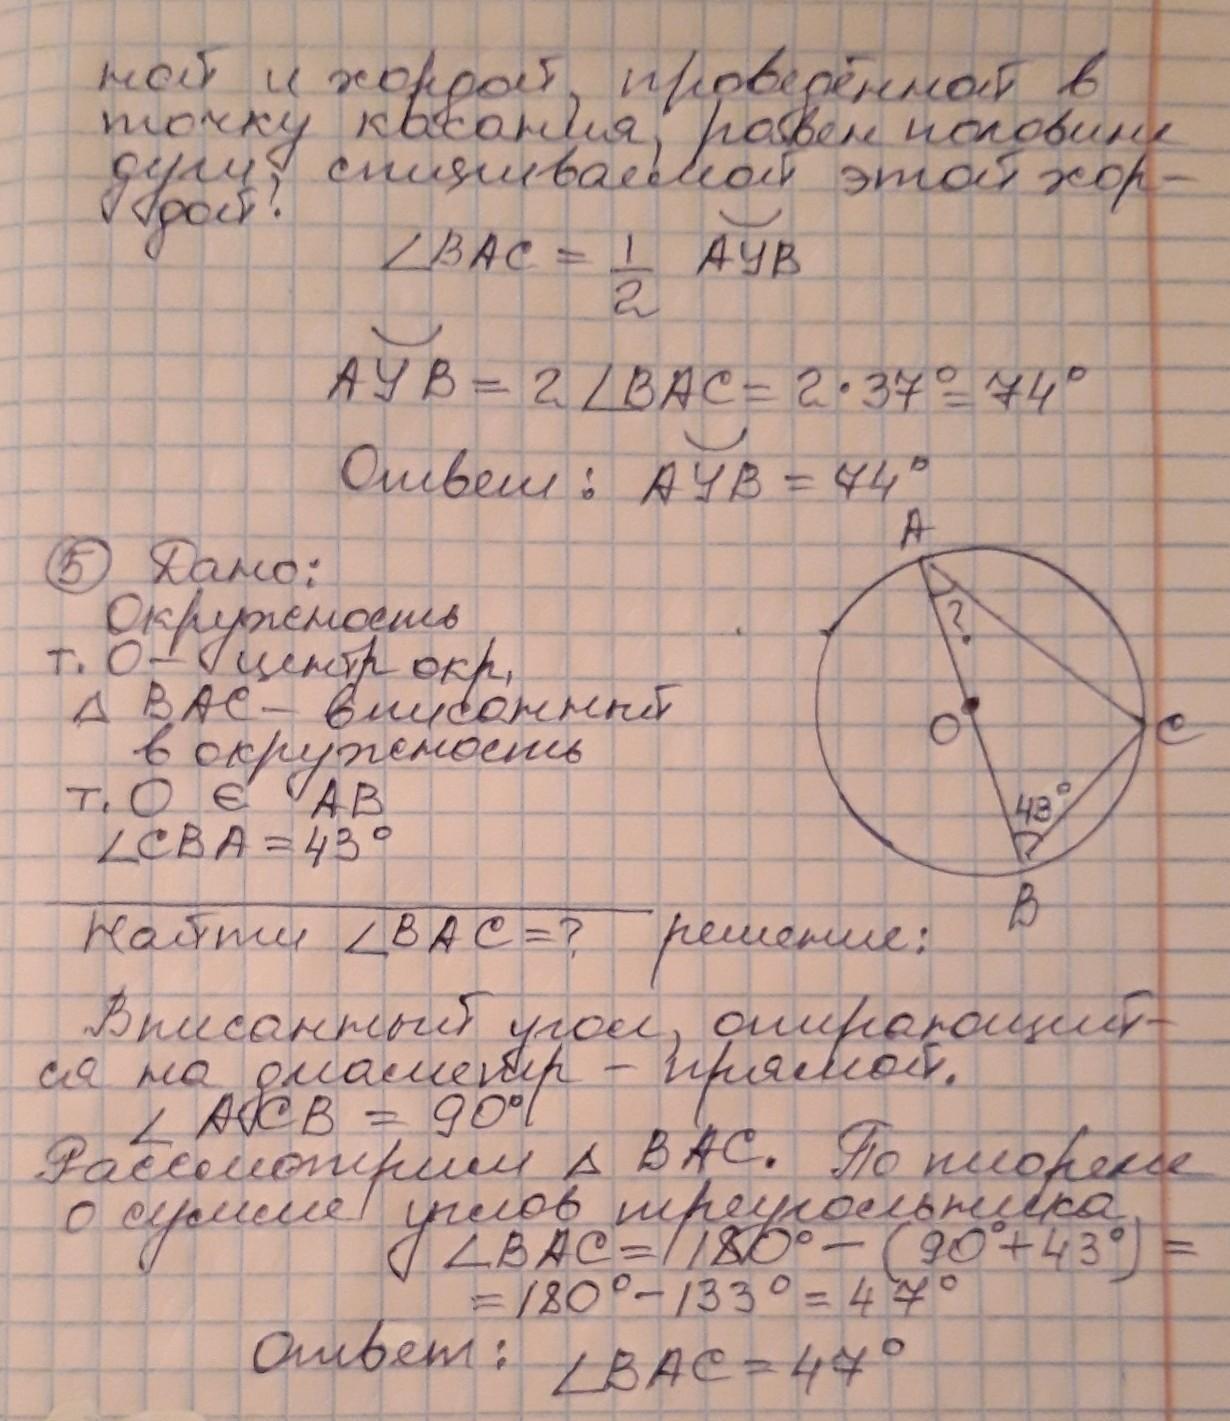 ной и хордой, проведённой в
точку касания, равен половине
дуги, стягиваемой этой хор-
дой.
∠BAC = 1/2 AYB
AYB = 2∠BAC = 2·37° = 74°
Ответ: AYB = 74°
A
⑤ Дано:
Окружность
?
т. О – центр окр.
△ BAC – вписанный
O
C
в окружность
т. О ∈ AB
43°
∠CBA = 43°
B
Найти ∠BAC = ? решение:
Вписанный угол, опирающий-
ся на диаметр – прямой.
∠ ACB = 90°
Рассмотрим △ BAC. По теореме
о сумме углов треугольника
∠BAC = 180° – (90° + 43°) =
= 180° – 133° = 47°
Ответ: ∠BAC = 47°